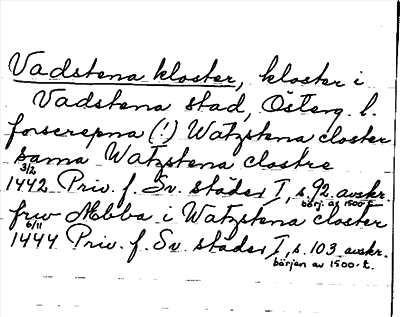 Vadstena kloster, kloster i
Vadstena stad, Österg. l.
forscrepna (!) Watzstena closter
sama Watzstena clostre
3/2
1442 Priv. f. Sv. städer I, s. 92. avskr.
börj. av 1500-t.
frw Abba i Watzstena closter
6/11
1444 Priv. f. Sv. städer I, s. 103 avskr.
början av 1500-t.